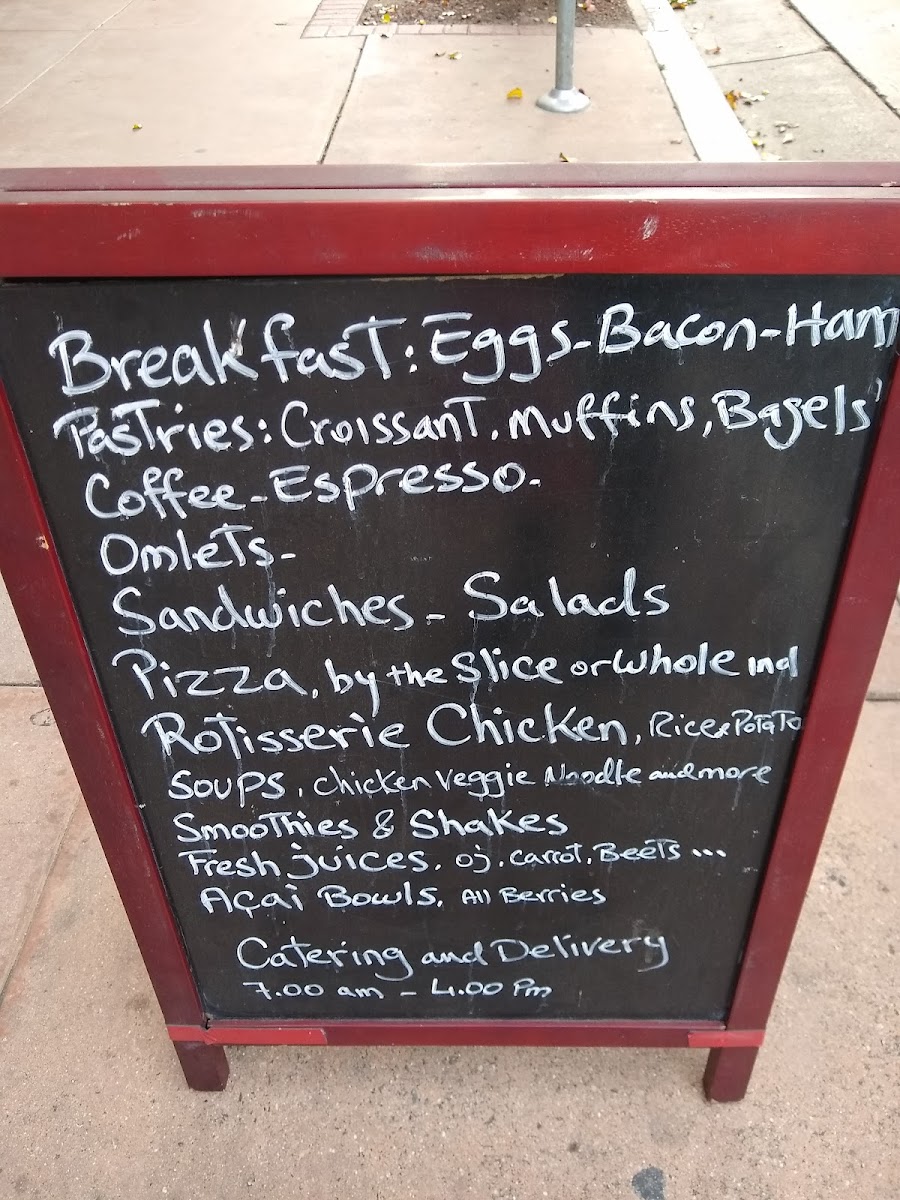 Breakfast: Eggs-Bacon-Ham
Pastries: Croissant, muffins, Bagels
Coffee-Espresso.
Omlets-
Sandwiches-Salads
Pizza, by the Slice or whole ind
Rotisserie Chicken, Rice & Potato
Soups, chicken veggie Noodle and more
Smoothies & Shakes
Fresh juices. oj. carrot. Beets ...
Açai Bowls, All Berries
Catering and Delivery
7.00 am - 4.00 Pm